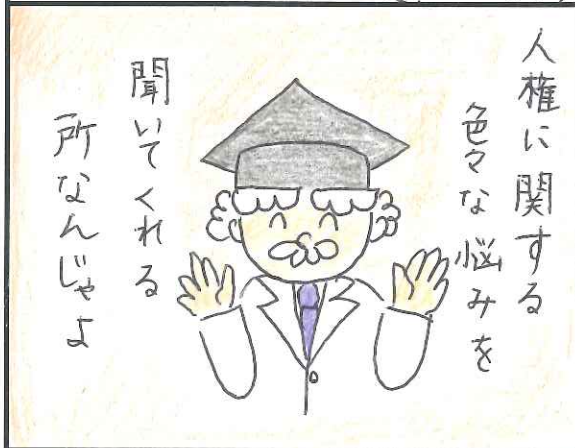 人権に関する
色々な悩みを
聞いてくれる
所なんじゃよ